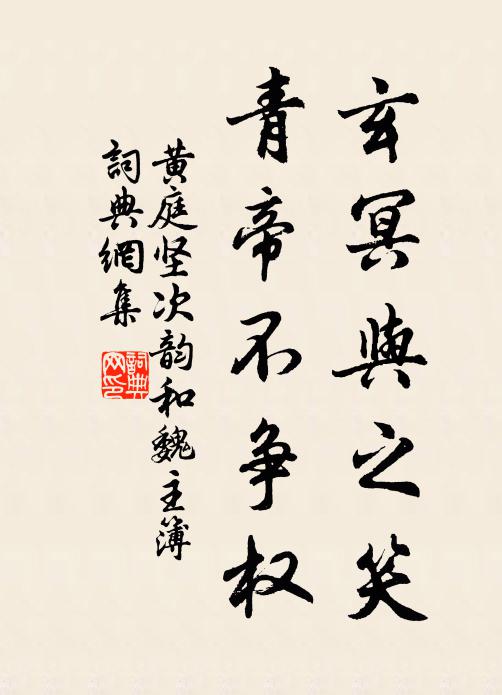 玄冥與之笑
青帝不争权
黄庭坚次韵和魏主簿
詞典網集
詞典网印